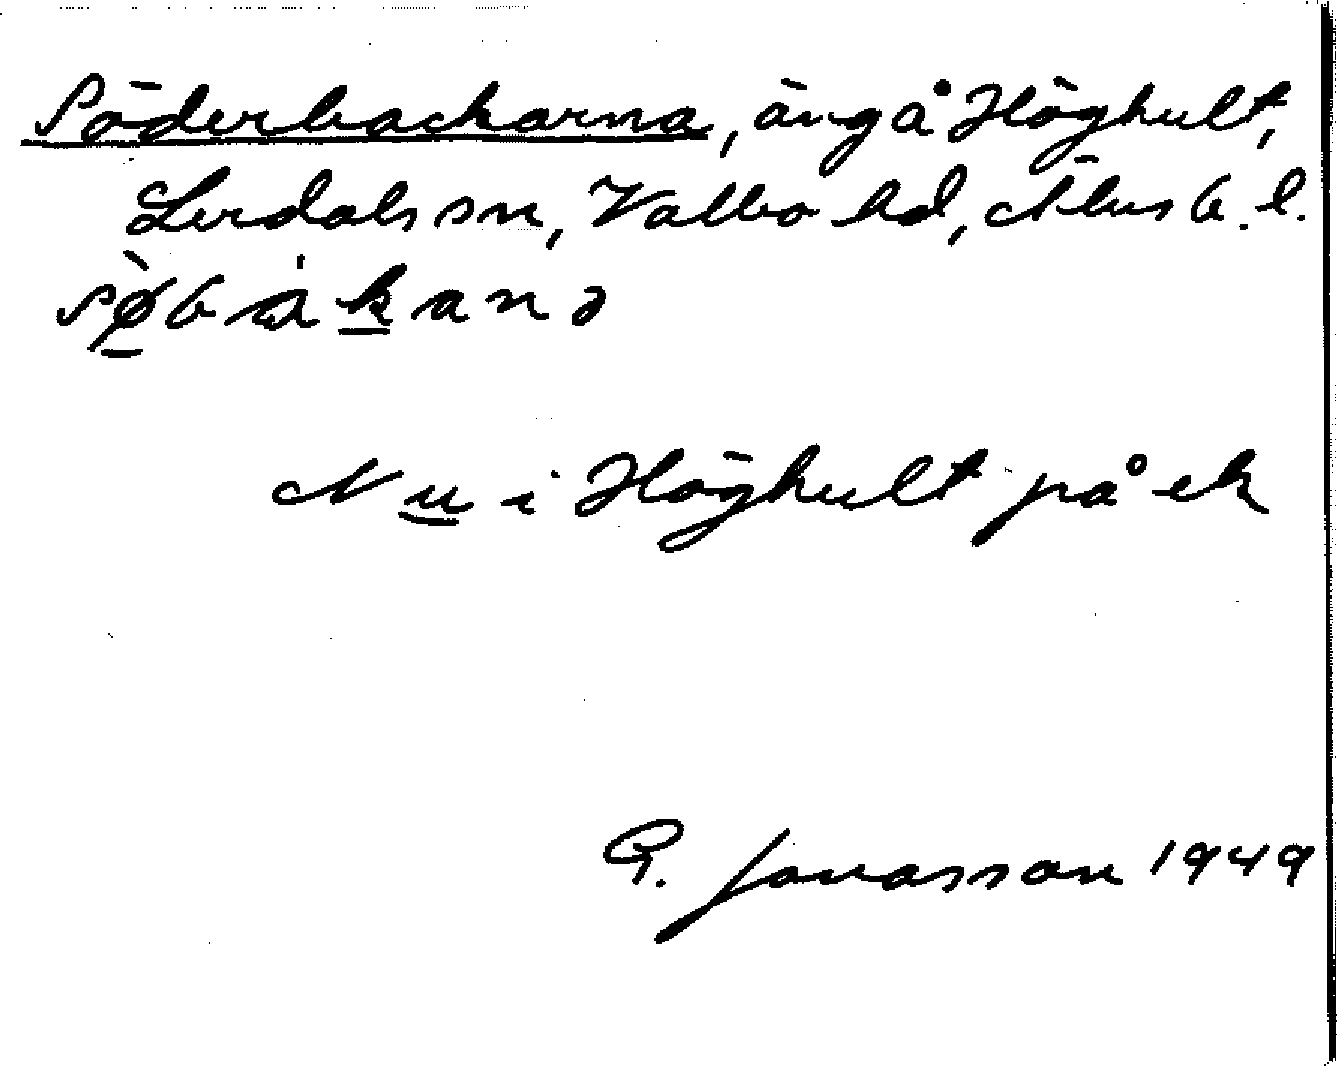 Söderbackarna, äng å Höghult,
Lerdals sn, Valbo hd, Älvsb. l.
søbakanə
Nu i Höghult på ek
G. Jonasson 1949